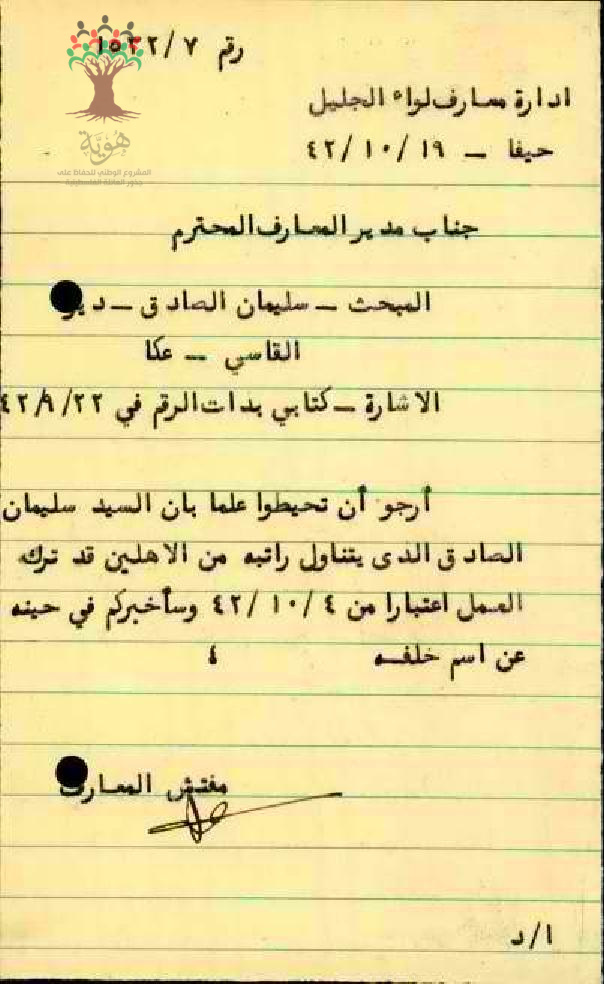 رقم ٧/ ١٥٢٢
ادارة معارف لواء الجليل
حيفا – ١٩ /١٠ /٤٢
هُويّة
المشروع الوطني للحفاظ على
جذور العائلة الفلسطينية
جناب مدير المعارف المحترم
المبحث – سليمان الصادق – دير
القاسي – عكا
الاشارة – كتابي بذات الرقم في ٢٢ /٩/ ٤٢
أرجو أن تحيطوا علما بان السيد سليمان
الصادق الذى يتناول راتبه من الاهلين قد ترك
العمل اعتبارا من ٤ /١٠ /٤٢ وسأخبركم في حينه
عن اسم خلفه ٤
مفتش المعارف
ا/د